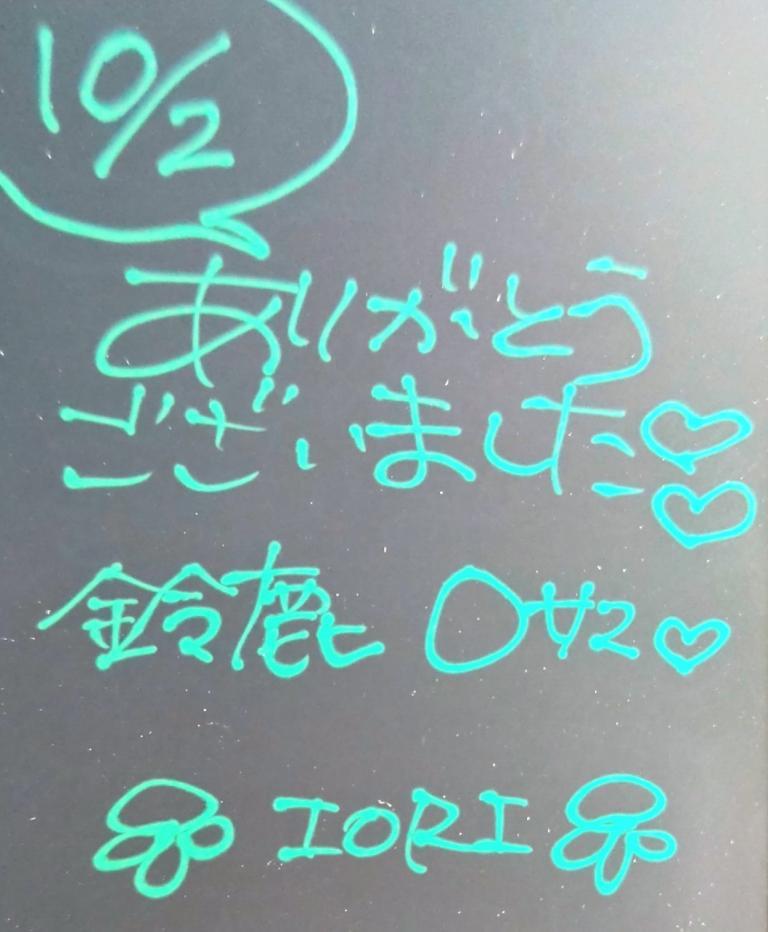 10/2
ありがとう
ございました♡♡
鈴鹿 サ2♡
IORI